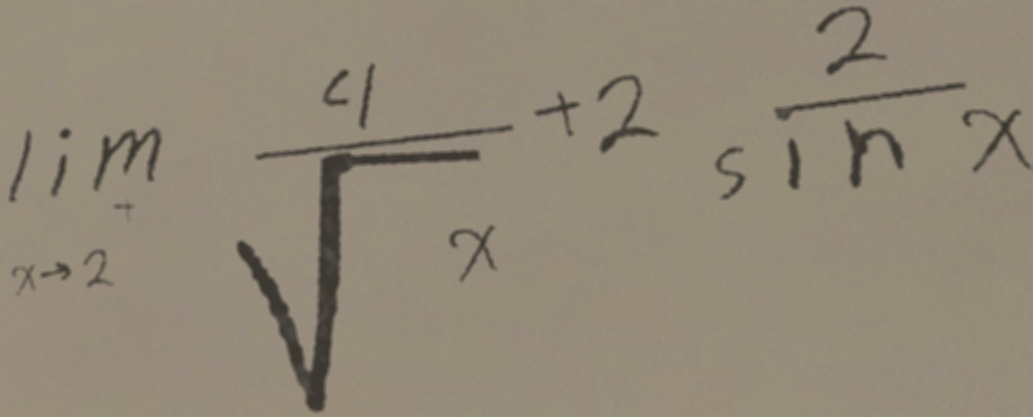 lim x→2⁺ 4/√x + 2 2/sin x